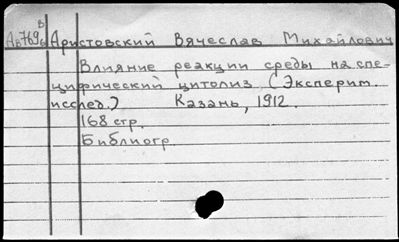 В
Ав769б Аристовский Вячеслав Михайлович
Влияние реакции среды на спе-
цифический цитолиз (Эксперим.
исслед.) Казань, 1912.
168 стр.
Библиогр.